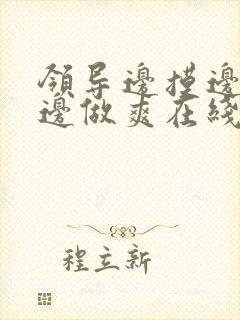 領导邊摸邊
邊做爽在綫
程立新